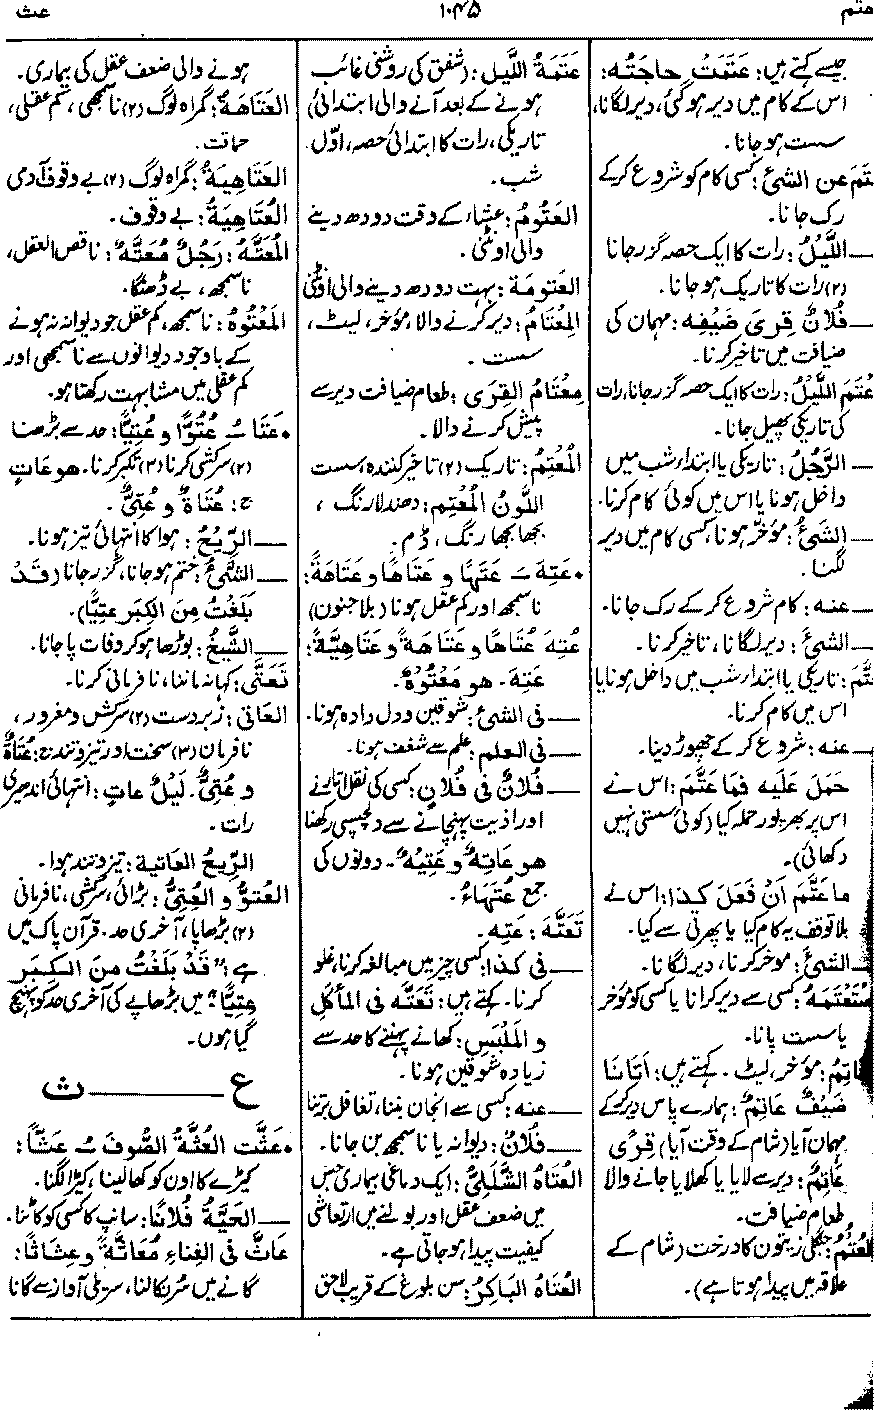 عتم
۱۰۴۵
عث
جیسے کہتے ہیں: عَتَمَتْ حاجَتُه:
اس کے کام میں دیر ہو گئی، دیر لگانا،
سست ہو جانا۔
عَتَمَ عن الشئ: کسی کام کو شروع کر کے
رک جانا۔
— اللَّيْلُ: رات کا ایک حصہ گزر جانا
(۲) رات کا تاریک ہو جانا۔
— فُلانٌ قِرىَ ضَيْفِه: مہمان کی
ضیافت میں تاخیر کرنا۔
عَتَّمَ اللَّيْلُ: رات کا ایک حصہ گزر جانا، رات
کی تاریکی پھیل جانا۔
— الرَّجُلُ: تاریکی یا ابتداء شب میں
داخل ہونا یا اس میں کوئی کام کرنا۔
— الشَئُ: مؤخر ہونا، کسی کام میں دیر
لگنا۔
— عنه: کام شروع کر کے رک جانا۔
— الشئَ: دیر لگانا، تاخیر کرنا۔
عَتَّمَ: تاریکی یا ابتداء شب میں داخل ہونا یا
اس میں کام کرنا۔
— عنه: شروع کر کے چھوڑ دینا۔
حَمَلَ عَلَيْه فَمَا عَتَّمَ: اس نے
اس پر بھرپور حملہ کیا (کوئی سستی نہیں
دکھائی)۔
ما عَتَّمَ اَنْ فَعَلَ كذا: اس نے
بلا توقف یہ کام کیا یا پھرتی سے کیا۔
— الشئَ: مؤخر کرنا، دیر لگانا۔
اسْتَعْتَمَهُ: کسی سے دیر کرانا یا کسی کو مؤخر
یا سست پانا۔
العَاتِمُ: مؤخر، لیٹ۔ کہتے ہیں: اَتَانَا
ضَيْفٌ عَاتِمٌ: ہمارے پاس دیر کر کے
مہمان آیا (شام کے وقت آیا) قِرًى
عَاتِمٌ: دیر سے لایا یا کھلایا جانے والا
طعام ضیافت۔
العُتُمُ: جنگلی زیتون کا درخت (شام کے
علاقہ میں پیدا ہوتا ہے)۔
عَتَمَةُ اللَّيل: (شفق کی روشنی غائب
ہونے کے بعد آنے والی ابتدائی)
تاریکی، رات کا ابتدائی حصہ، اوّل
شب۔
العَتُومُ: عشاء کے وقت دودھ دینے
والی اونٹنی۔
العَتومَة: بہت دودھ دینے والی اونٹنی
المِعْتَامُ: دیر کرنے والا، مؤخر، لیٹ،
سست۔
مِعْتَامُ القِرَى: طعام ضیافت دیر سے
پیش کرنے والا۔
المُعْتِمُ: تاریک (۲) تاخیر کنندہ، سست
اللَّونُ المُعْتِم: دھندلا رنگ،
بجھا بجھا رنگ، ڈم۔
• عَتِهَ ـَ عَتَهًا و عَتَاهًا و عَتَاهَةً:
ناسمجھ اور کم عقل ہونا (بلا جنون)
عُتِهَ عُتَاهًا و عَتَاهَةً و عَتَاهِيَةً:
عَتِهَ۔ هو مَعْتُوْهٌ۔
— فی الشئ: شوقین و دلدادہ ہونا۔
— فی العلم: علم سے شغف ہونا۔
— فُلانٌ فی فُلانٍ: کسی کی نقل اتارنے
اور اذیت پہنچانے سے دلچسپی رکھنا
هو عَاتِهٌ و عَتِيْهٌ۔ دونوں کی
جمع عُتَهَاءُ۔
تَعَتَّهَ: عَتِه۔
— فی كَذا: کسی چیز میں مبالغہ کرنا، غلو
کرنا۔ کہتے ہیں: تَعَتَّه فی المَأكَلِ
و المَلْبَس: کھانے پہننے کا حد سے
زیادہ شوقین ہونا۔
— عنه: کسی سے انجان بننا، تغافل برتنا
— فُلانٌ: دیوانہ یا ناسمجھ بن جانا۔
العُتَاهُ الشَّلَلِیُّ: ایک دماغی بیماری جس
میں ضعف عقل اور بولنے میں ارتعاشی
کیفیت پیدا ہو جاتی ہے۔
العُتَاهُ البَاكِرُ: سن بلوغ کے قریب لاحق
ہونے والی ضعف عقل کی بیماری۔
العَتَاهَةُ: گمراہ لوگ (۲) ناسمجھی، کم عقلی،
حماقت۔
العَتَاهِيَةُ: گمراہ لوگ (۲) بے وقوف آدمی
العُتَاهِيَةُ: بے وقوف۔
المُعَتَّهُ: رَجُلٌ مُعَتَّهٌ: ناقص العقل،
ناسمجھ، بے ڈھنگا۔
المَعْتُوْهُ: ناسمجھ، کم عقل جو دیوانہ نہ ہونے
کے باوجود دیوانوں سے ناسمجھی اور
کم عقلی میں مشابہت رکھتا ہو۔
• عَتَا ـُ عُتُوًّا و عُتِيًّا: حد سے بڑھنا
(۲) سرکشی کرنا (۳) تکبر کرنا۔ هو عَاتٍ
ج: عُتَاةٌ و عُتِیٌّ۔
— الرِّيْحُ: ہوا کا انتہائی تیز ہونا۔
— الشَّئُ: ختم ہو جانا، گزر جانا (قَدْ
بَلَغْتُ مِنَ الكِبَرِ عِتِيًّا)۔
— الشَّيْخُ: بوڑھا ہو کر وفات پا جانا۔
تَعَتَّى: کہا نہ ماننا، نافرمانی کرنا۔
العَاتی: زبردست (۲) سرکش و مغرور،
نافرمان (۳) سخت اور تیز و تند ج: عُتَاةٌ
و عُتِیٌّ۔ لَيْلٌ عاتٍ: انتہائی اندھیری
رات۔
الرِّيحُ العَاتية: تیز و تند ہوا۔
العُتوُّ و العُتِیُّ: بڑائی، سرکشی، نافرمانی
(۲) بڑھاپا، آخری حد۔ قرآن پاک میں
ہے: "قَدْ بَلَغْتُ مِنَ الكِبَرِ
عِتِيًّا": میں بڑھاپے کی آخری حد کو پہنچ
گیا ہوں۔
ع — ث
• عَثَّت العُثَّةُ الصُّوفَ ـُ عَثًّا:
کیڑے کا اون کو کھا لینا، کیڑا لگنا۔
— الحَيَّةُ فُلانًا: سانپ کا کسی کو کاٹنا۔
عَاثَّ فی الغِناءِ مُعَاثَّةً و عِثَاثًا:
گانے میں سُر نکالنا، سریلی آواز سے گانا